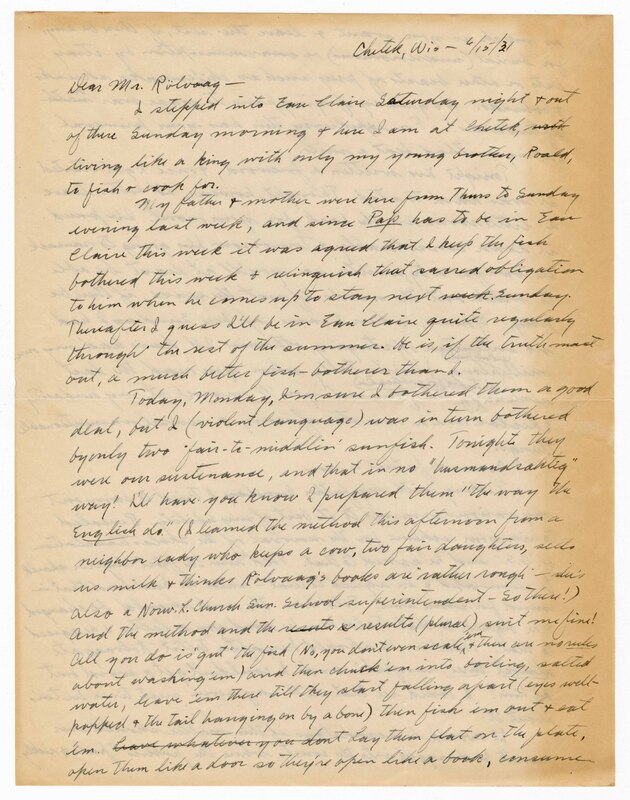 Chetek, Wis – 6/15/31
Dear Mr. Rölvaag –
I stepped into Eau Claire Saturday night & out
of there Sunday morning & here I am at Chetek,
living like a king with only my young brother, Roald,
to fish & cook for.
My father & mother were here from Thurs to Sunday
evening last week, and since Pap has to be in Eau
Claire this week it was agreed that I keep the fish
bothered this week & relinquish that sacred obligation
to him when he comes up to stay next week Sunday.
Thereafter I guess I'll be in Eau Claire quite regularly
through the rest of the summer. He is, if the truth must
out, a much better fish-botherer than I.
Today, Monday, I'm sure I bothered them a good
deal, but I (violent language) was in turn bothered
by only two "fair-to-middlin' sunfish. Tonight they
were our sustenance, and that in no "husmandsaktig"
way! I'll have you know I prepared them "the way the
English do." (I learned the method this afternoon from a
neighbor lady who keeps a cow, two fair daughters, sells
us milk & thinks Rölvaag's books are "rather rough" – she's
also a Norw. L. Church Sun. School superintendent – So there!)
And the method and the results (plural) suit me fine!
All you do is "gut" the fish (No, you don't even scale 'em, & there are no rules
about washing 'em) and then chuck 'em into boiling, salted
water, leave 'em there till they start falling apart (eyes well-
popped & the tail hanging on by a bone) then fish 'em out & eat
'em. leave whatever you don't Lay them flat on the plate,
open them like a door so they're open like a book, consume